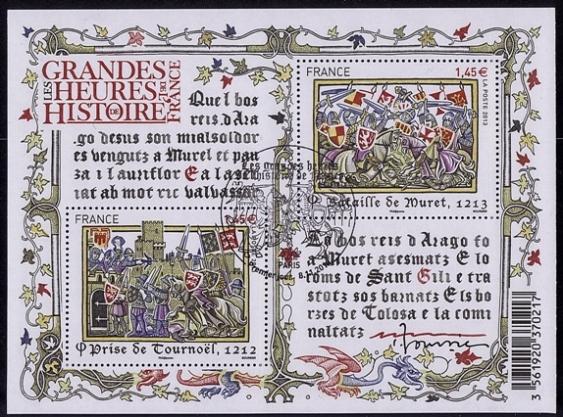 LES GRANDES HEURES DE L'HISTOIRE DE FRANCE
Que l bos
reis d'Ara
go desus son mialsoldor
es vengutz a Murel et pau
za i l auriflor E a la se
ti at ab mot ric valvassor
FRANCE 1,45€
LA POSTE 2013
Bataille de Muret, 1213
FRANCE 1,45€
Prise de Tournoël, 1212
Les grandes heures
de l'histoire de France
PARIS
Premier jour
Lo bos reis d'Arago fo
a Muret asesmatz E lo
coms de Sant Gili e tra
stotz sos barnatz E ls bo
rzes de Tolosa e la comi
naltatz
3 561920 370217